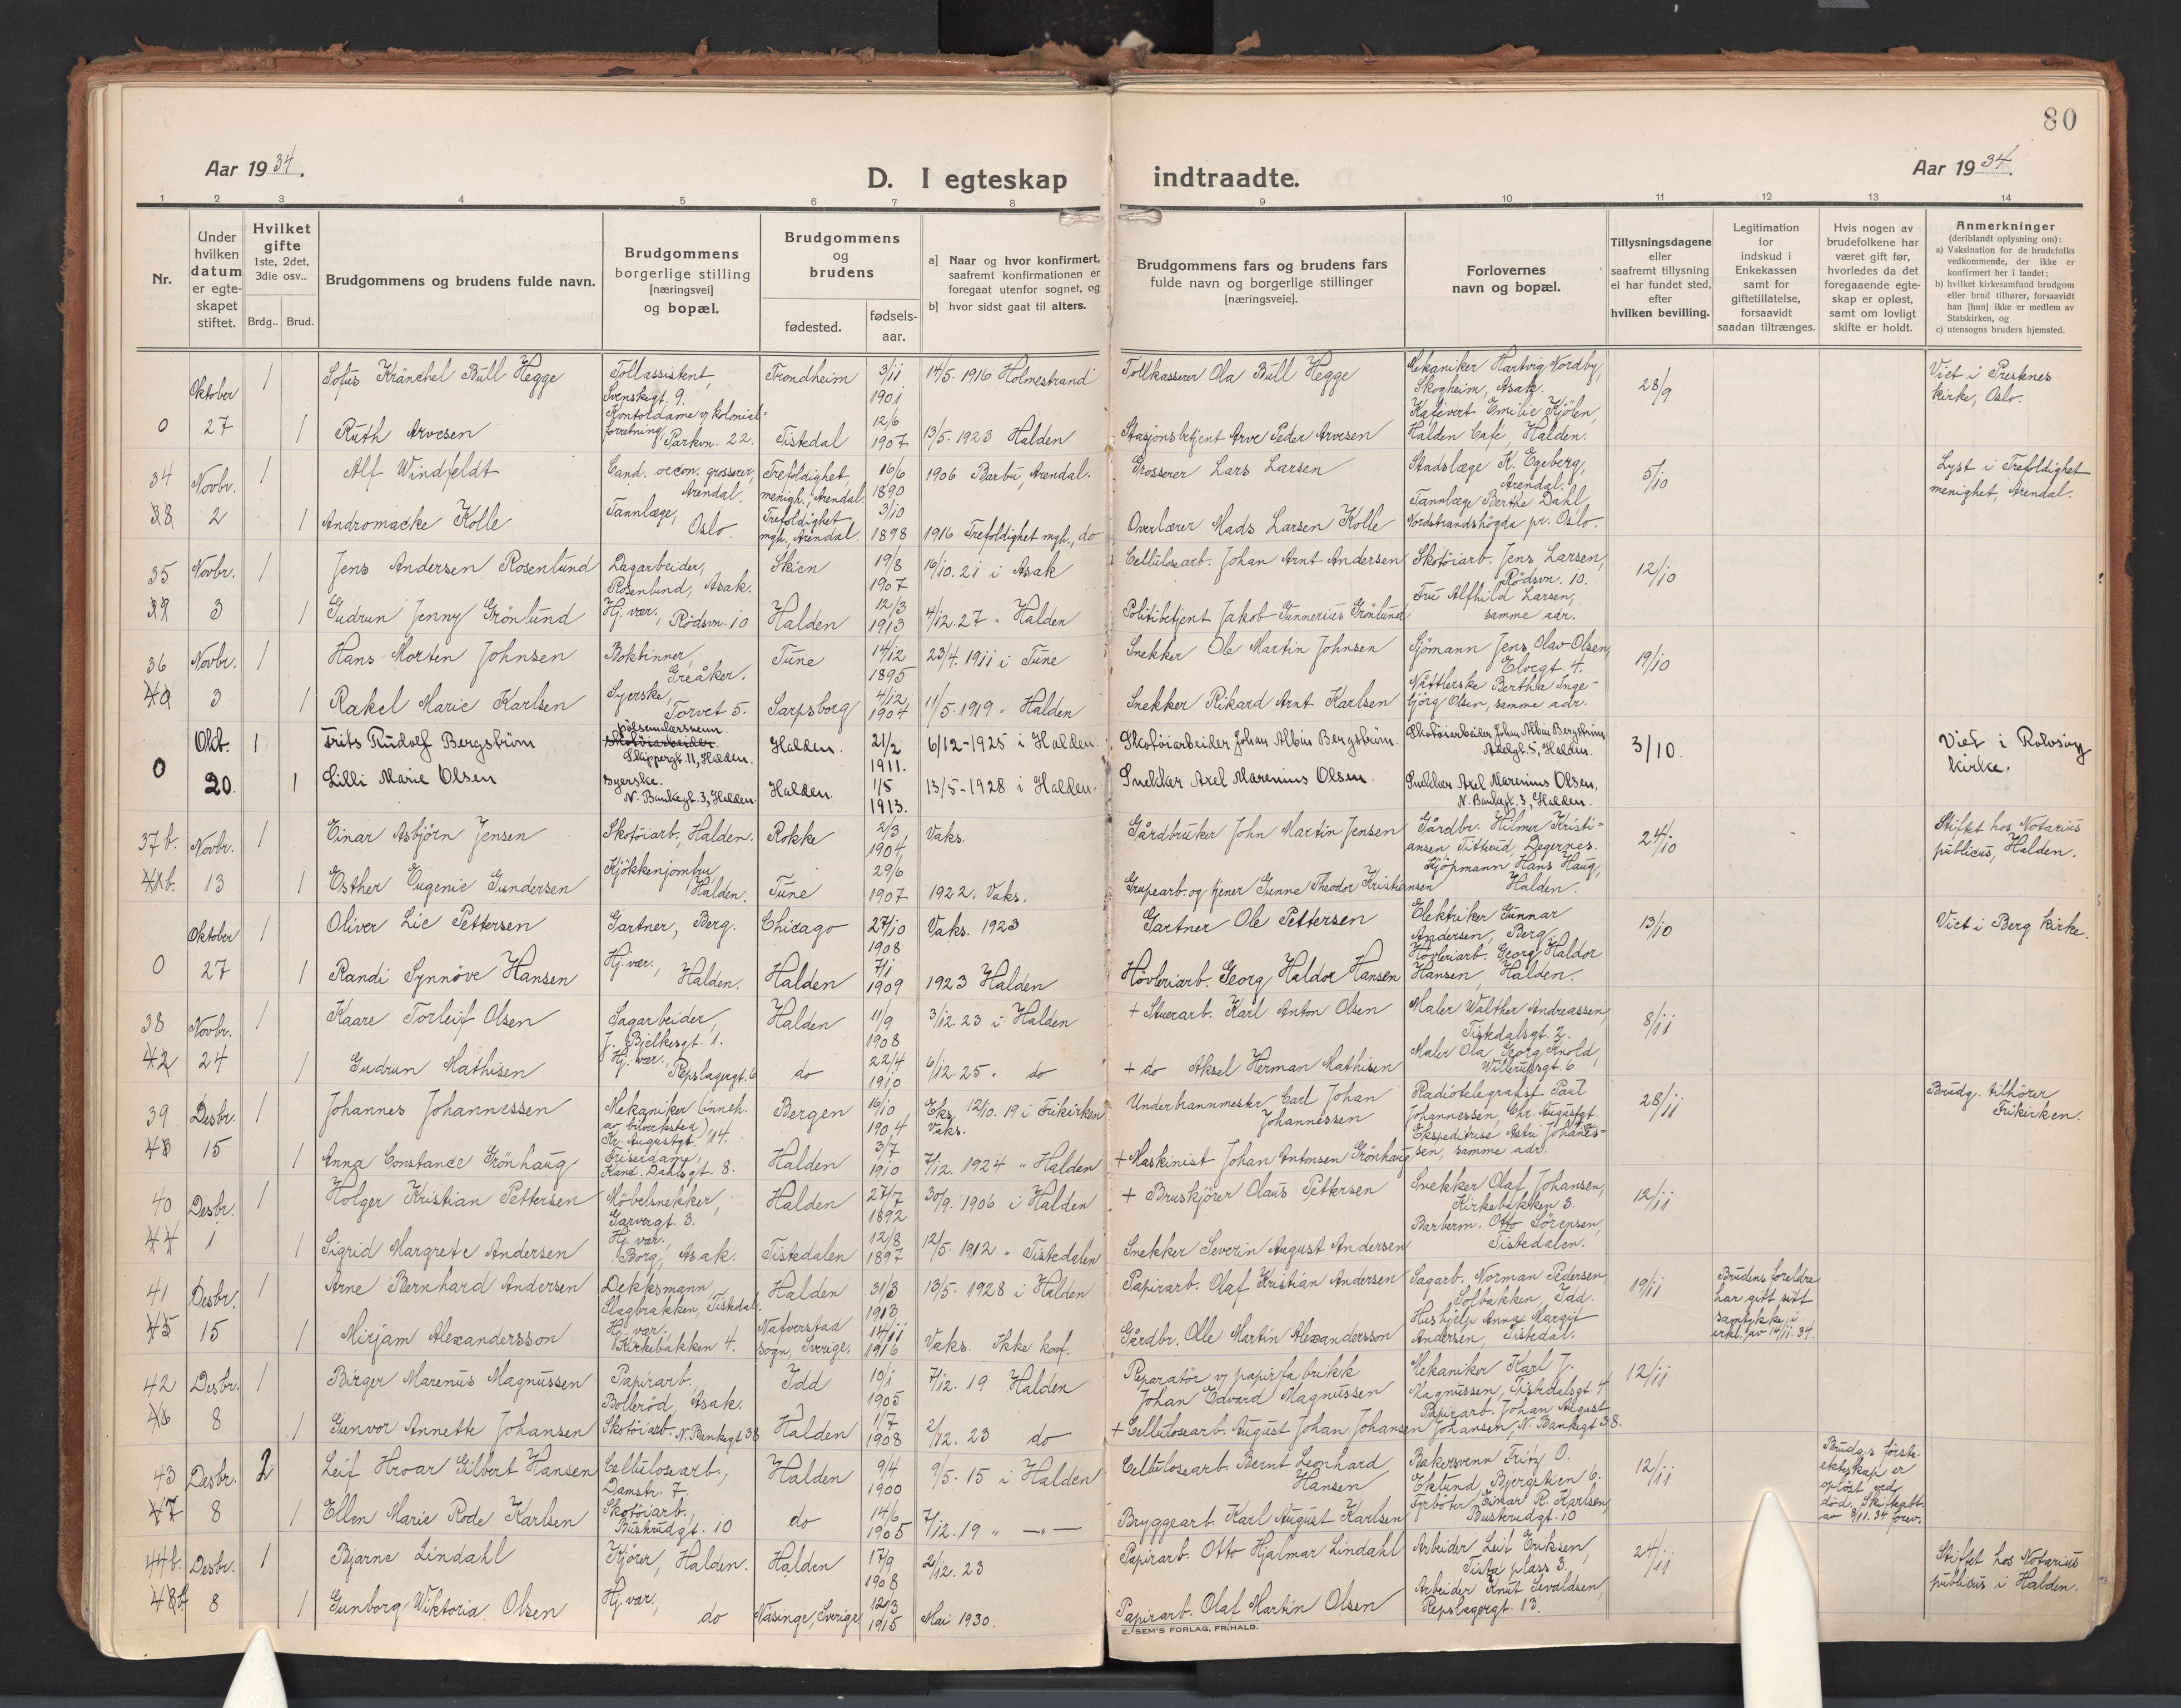 80
Aar 1934.
D. I egteskap indtraadte.
Aar 1934.
1 2 3 4 5 6 7 8 9 10 11 12 13 14
Nr.
Under hvilken datum er egteskapet stiftet.
Hvilket gifte 1ste, 2det, 3die osv..
Brdg.. Brud.
Brudgommens og brudens fulde navn.
Brudgommens borgerlige stilling [næringsvei] og bopæl.
Brudgommens og brudens
fødested.
fødsels-aar.
a] Naar og hvor konfirmert, saafremt konfirmationen er foregaat utenfor sognet, og
b] hvor sidst gaat til alters.
Brudgommens fars og brudens fars fulde navn og borgerlige stillinger [næringsveie].
Forlovernes navn og bopæl.
Tillysningsdagene eller saafremt tillysning ei har fundet sted, efter hvilken bevilling.
Legitimation for indskud i Enkekassen samt for giftetillatelse, forsaavidt saadan tiltrænges.
Hvis nogen av brudefolkene har været gift før, hvorledes da det foregaaende egteskap er opløst, samt om lovligt skifte er holdt.
Anmerkninger (deriblandt oplysning om):
a) Vaksination for de brudefolks vedkommende, der ikke er konfirmert her i landet;
b) hvilket kirkesamfund brudgom eller brud tilhører, forsaavidt han [hun] ikke er medlem av Statskirken, og
c) utensogns bruders hjemsted.
Oktober 1 Sofus Kränchel Bull Hegge Tollassistent, Svenskegt. 9. Trondheim 3/11 1901 14/5. 1916 Holmestrand Tollkasserer Ola Bull Hegge Mekaniker Hartvig Nordby, Skogheim, Asak. 28/9 Viet i Presknes kirke, Oslo.
0 27 1 Ruth Arvesen Kontordame v/ kolonialforretning, Parkvn. 22. Tistedal 12/6 1907 13/5. 1923 Halden Stasjonsbetjent Arve Peder Arvesen Kafévert Emilie Kjølen, Halden Café, Halden.
34 Novbr. 1 Alf Windfeldt Cand. oecon. grosserer, Arendal. Trefoldighet, menigh., Arendal. 16/6 1890 1906 Barbu, Arendal. Grosserer Lars Larsen Stadslæge K. Egeberg, Arendal. 5/10 Lyst i Trefoldighet menighet, Arendal.
38 2 1 Andromacke Kolle Tannlæge, Oslo. Trefoldighet mgh., Arendal. 3/10 1898 1916 Trefoldighet mgh., do Overlærer Mads Larsen Kolle Tannlæge Berthe Dahl, Nordstrandshögda pr. Oslo.
35 Novbr. 1 Jens Andersen Rosenlund Dagarbeider, Rosenlund, Asak. Skien 19/8 1907 16/10. 21 i Asak Cellulosearb. Johan Arnt Andersen Skotöiarb. Jens Larsen, Rødsvn. 10. 12/10
39 3 1 Gudrun Jenny Grönlund Hj. vær., Rödsvn. 10 Halden 12/3 1913 4/12. 27 " Halden Politibetjent Jakob Gunnerius Grönlund Fru Alfhild Larsen, samme adr.
36 Novbr. 1 Hans Morten Johnsen Bokbinner, Greåker. Tune 14/12 1895 23/4. 1911 i Tune Snekker Ole Martin Johnsen Sjömann Jens Olav Olsen, Elvegt. 4. 19/10
40 3 1 Rakel Marie Karlsen Syerske, Torvet 5. Sarpsborg 4/12 1904 11/5. 1919 " Halden Snekker Rikard Arnt Karlsen Nåttlerske Bertha Ingebjörg Olsen, samme adr.
Okt. 1 Frits Rudolf Bergström pölsemakersvenn Skotöiarbeider Skippergt. 11, Halden. Halden. 21/2 1911. 6/12-1925 i Halden. Skotöiarbeider Johan Albin Bergström. Skotöiarbeider Johan Albin Bergström, Adelgt. 5, Halden. 3/10. Viet i Rolvsöy kirke.
0 20. 1 Lilli Marie Olsen Syerske. N. Bankegt. 3, Halden. Halden. 1/5 1913. 13/5-1928 i Halden. Snekker Axel Marenius Olsen. Snekker Axel Marenius Olsen, N. Bankegt. 3, Halden.
37b. Novbr. 1 Einar Asbjörn Jensen Skotöiarb., Halden. Rokke 2/3 1904 Vaks. Gårdbruker John Martin Jensen Gårdbr. Hilmer Kristiansen, Degernes. 24/10 Stiftet hos Notarius publicus, Halden.
41b. 13 1 Esther Eugenie Gundersen Kjökkenjomfru Halden. Tune 29/6 1907 1922. Vaks. Grupearb. og tjener Gunne Theodor Kristiansen Kjöpmann Hans Haug, Halden.
Oktober 1 Oliver Lie Pettersen Gartner, Berg. Chicago 27/10 1908 Vaks. 1923 Gartner Ole Pettersen Elektriker Gunnar Andersen, Berg. 13/10 Viet i Berg kirke.
0 27 1 Randi Synnöve Hansen Hj. vær., Halden. Halden 7/1 1909 1923 Halden Hövleriarb. Georg Haldor Hansen Hövleriarb. Georg Haldor Hansen, Halden.
38 Novbr. 1 Kaare Torleif Olsen Sagarbeider, J. Bjelkesgt. 1. Halden 11/9 1908 3/12. 23 i Halden + Stuerarb. Karl Anton Olsen Maler Walther Andreassen, Tistedalsgt. 2. 8/11
42 24 1 Gudrun Mathisen Hj. vær., Repslagergt. 6 do 22/4 1910 6/12. 25 " do + do Aksel Herman Mathisen Maler Ola Georg Knold, Willerudsgt. 6
39 Desbr. 1 Johannes Johannessen Mekaniker (inneh. av bilverksted) Kr. Augustgt. 14. Bergen 16/10 1904 Eks. 12/10. 19 i Frikirken Vaks. Underbrannmester Carl Johan Johannessen Radiotelegrafist Paul Johannessen, Chr. Augustgt. 28/11 Brudg. tilhörer Frikirken.
43 15 1 Anna Constance Grönhaug Friserdame, Kand. Dahlsgt. 8. Halden 3/7 1910 7/12. 1924 " Halden + Maskinist Johan Antonsen Grönhaug Ekspeditrise Astri Johannessen, samme adr.
40 Desbr. 1 Holger Kristian Pettersen Möbelsnekker, Garvergt. 3. Halden 27/7 1892 30/9. 1906 i Halden + Bruskjörer Olaus Pettersen Snekker Olaf Johansen, Kirkebakken 3. 12/11
44 1 1 Sigrid Margrete Andersen Hj. vær. Borg, Asak. Tistedalen 12/8 1897 12/5. 1912 " Tistedalen Snekker Severin August Andersen Barberm. Otto Sörensen, Tistedalen.
41 Desbr. 1 Arne Bernhard Andersen Dekksmann, Slagbrakken, Tistedal. Halden 31/3 1913 13/5. 1928 i Halden Papirarb. Olaf Kristian Andersen Sagarb. Norman Pedersen, Solbakken, Idd. 19/11 Brudens foreldre har gitt sitt samtykke i erkl. av 14/11. 34.
45 15 1 Mirjam Alexandersson Hj. vær. Kirkebakken 4. Naverstad sogn, Sverige. 14/11 1916 Vaks. Ikke konf. Gårdbr. Olle Martin Alexandersson Hushjelp Anna Margit Andersen, Tistedal.
42 Desbr. 1 Birger Marenus Magnussen Papirarb. Bolleröd, Asak. Idd 10/1 1905 7/12. 19 Halden Reparatör v/ papirfabrikk Johan Edvard Magnussen Mekaniker Karl J. Magnussen, Tistedalsgt. 4 12/11
46 8 1 Gunvor Annette Johansen Skotöiarb. N. Bankegt 38 Halden 1/7 1908 2/12. 23 do + Cellulosearb. August Johan Johansen Papirarb. Johan August Johansen, N. Bankegt 38.
43 Desbr. 2 Leif Hroar Gilbert Hansen Cellulosearb., Damstr. 7. Halden 9/4 1900 9/5. 15 i Halden Cellulosearb. Bernt Leonhard Hansen Bakersvenn Fritz O. Eklund, Bjergstien 6. 12/11 Brudg.s første ekteskap er oplöst ved död. Skifteatt. av 9/11. 34 forev.
47 8 1 Ellen Marie Rode Karlsen Skotöiarb., Buskrudgt. 10 do 14/6 1905 7/12. 19 " —"— Bryggearb. Karl August Karlsen Fyrböter Einar R. Karlsen, Buskrudgt. 10
44b. Desbr. 1 Bjarne Lindahl Kjörer, Halden. Halden 17/9 1908 2/12. 23 Papirarb. Otto Hjalmar Lindahl Arbeider Leif Eriksen, Tista plass 3. 24/11 Stiftet hos Notarius publicus i Halden.
48b. 8 1 Gunborg Wiktoria Olsen Hj. vær., do Näsinge, Sverige 12/3 1915 Mai 1930. Papirarb. Olaf Martin Olsen Arbeider Knut Sevaldsen, Repslagergt. 13.
E. SEM'S FORLAG, FR.HALD.